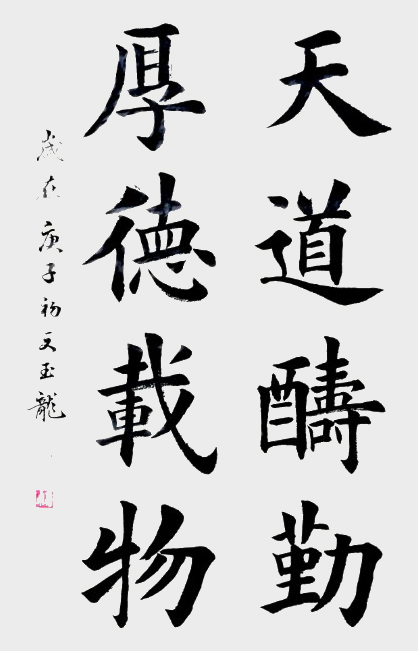 天道醻勤
厚德載物
歲在庚子初夏玉龍